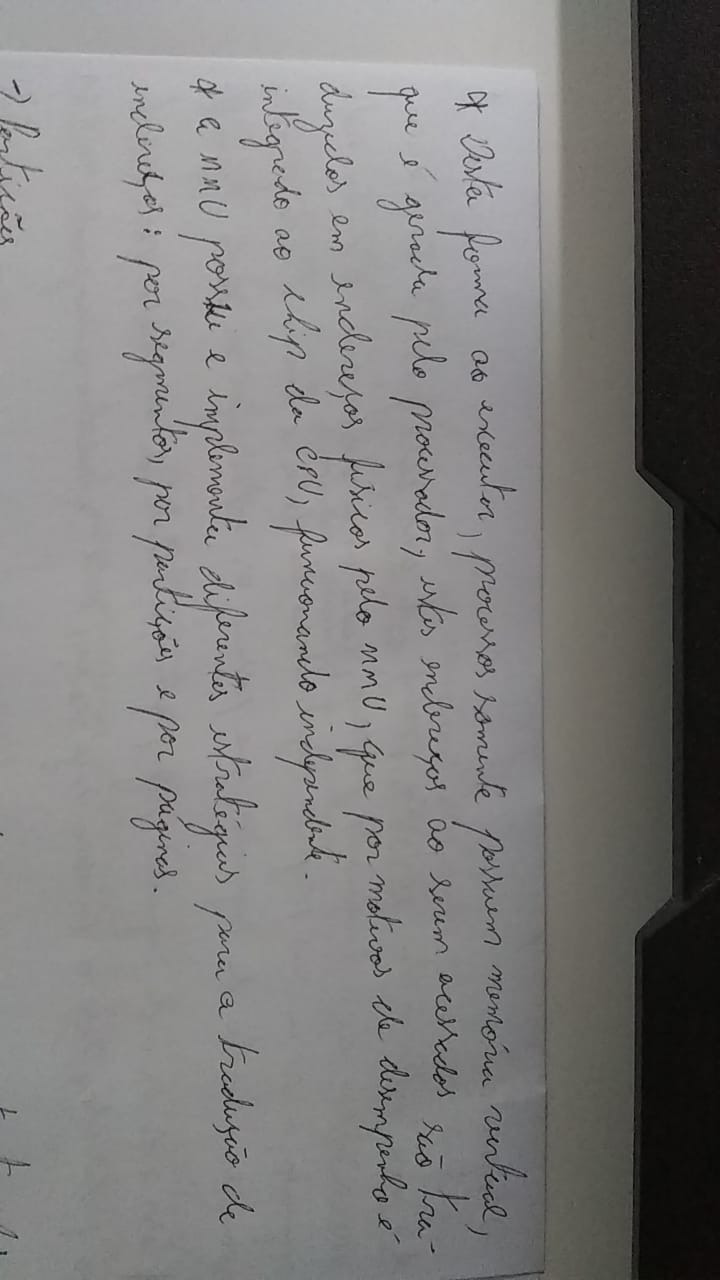 * Desta forma ao executar, processos somente possuem memória virtual,
que é gerada pelo processador, estes endereços ao serem acessados são tra-
duzidos em endereços físicos pelo MMU, que por motivos de desempenho é
integrado ao chip da CPU, funcionando independente.
* a MMU possui e implementa diferentes estratégias para a tradução de
endereços: por segmentos, por partições e por páginas.
-> Partições